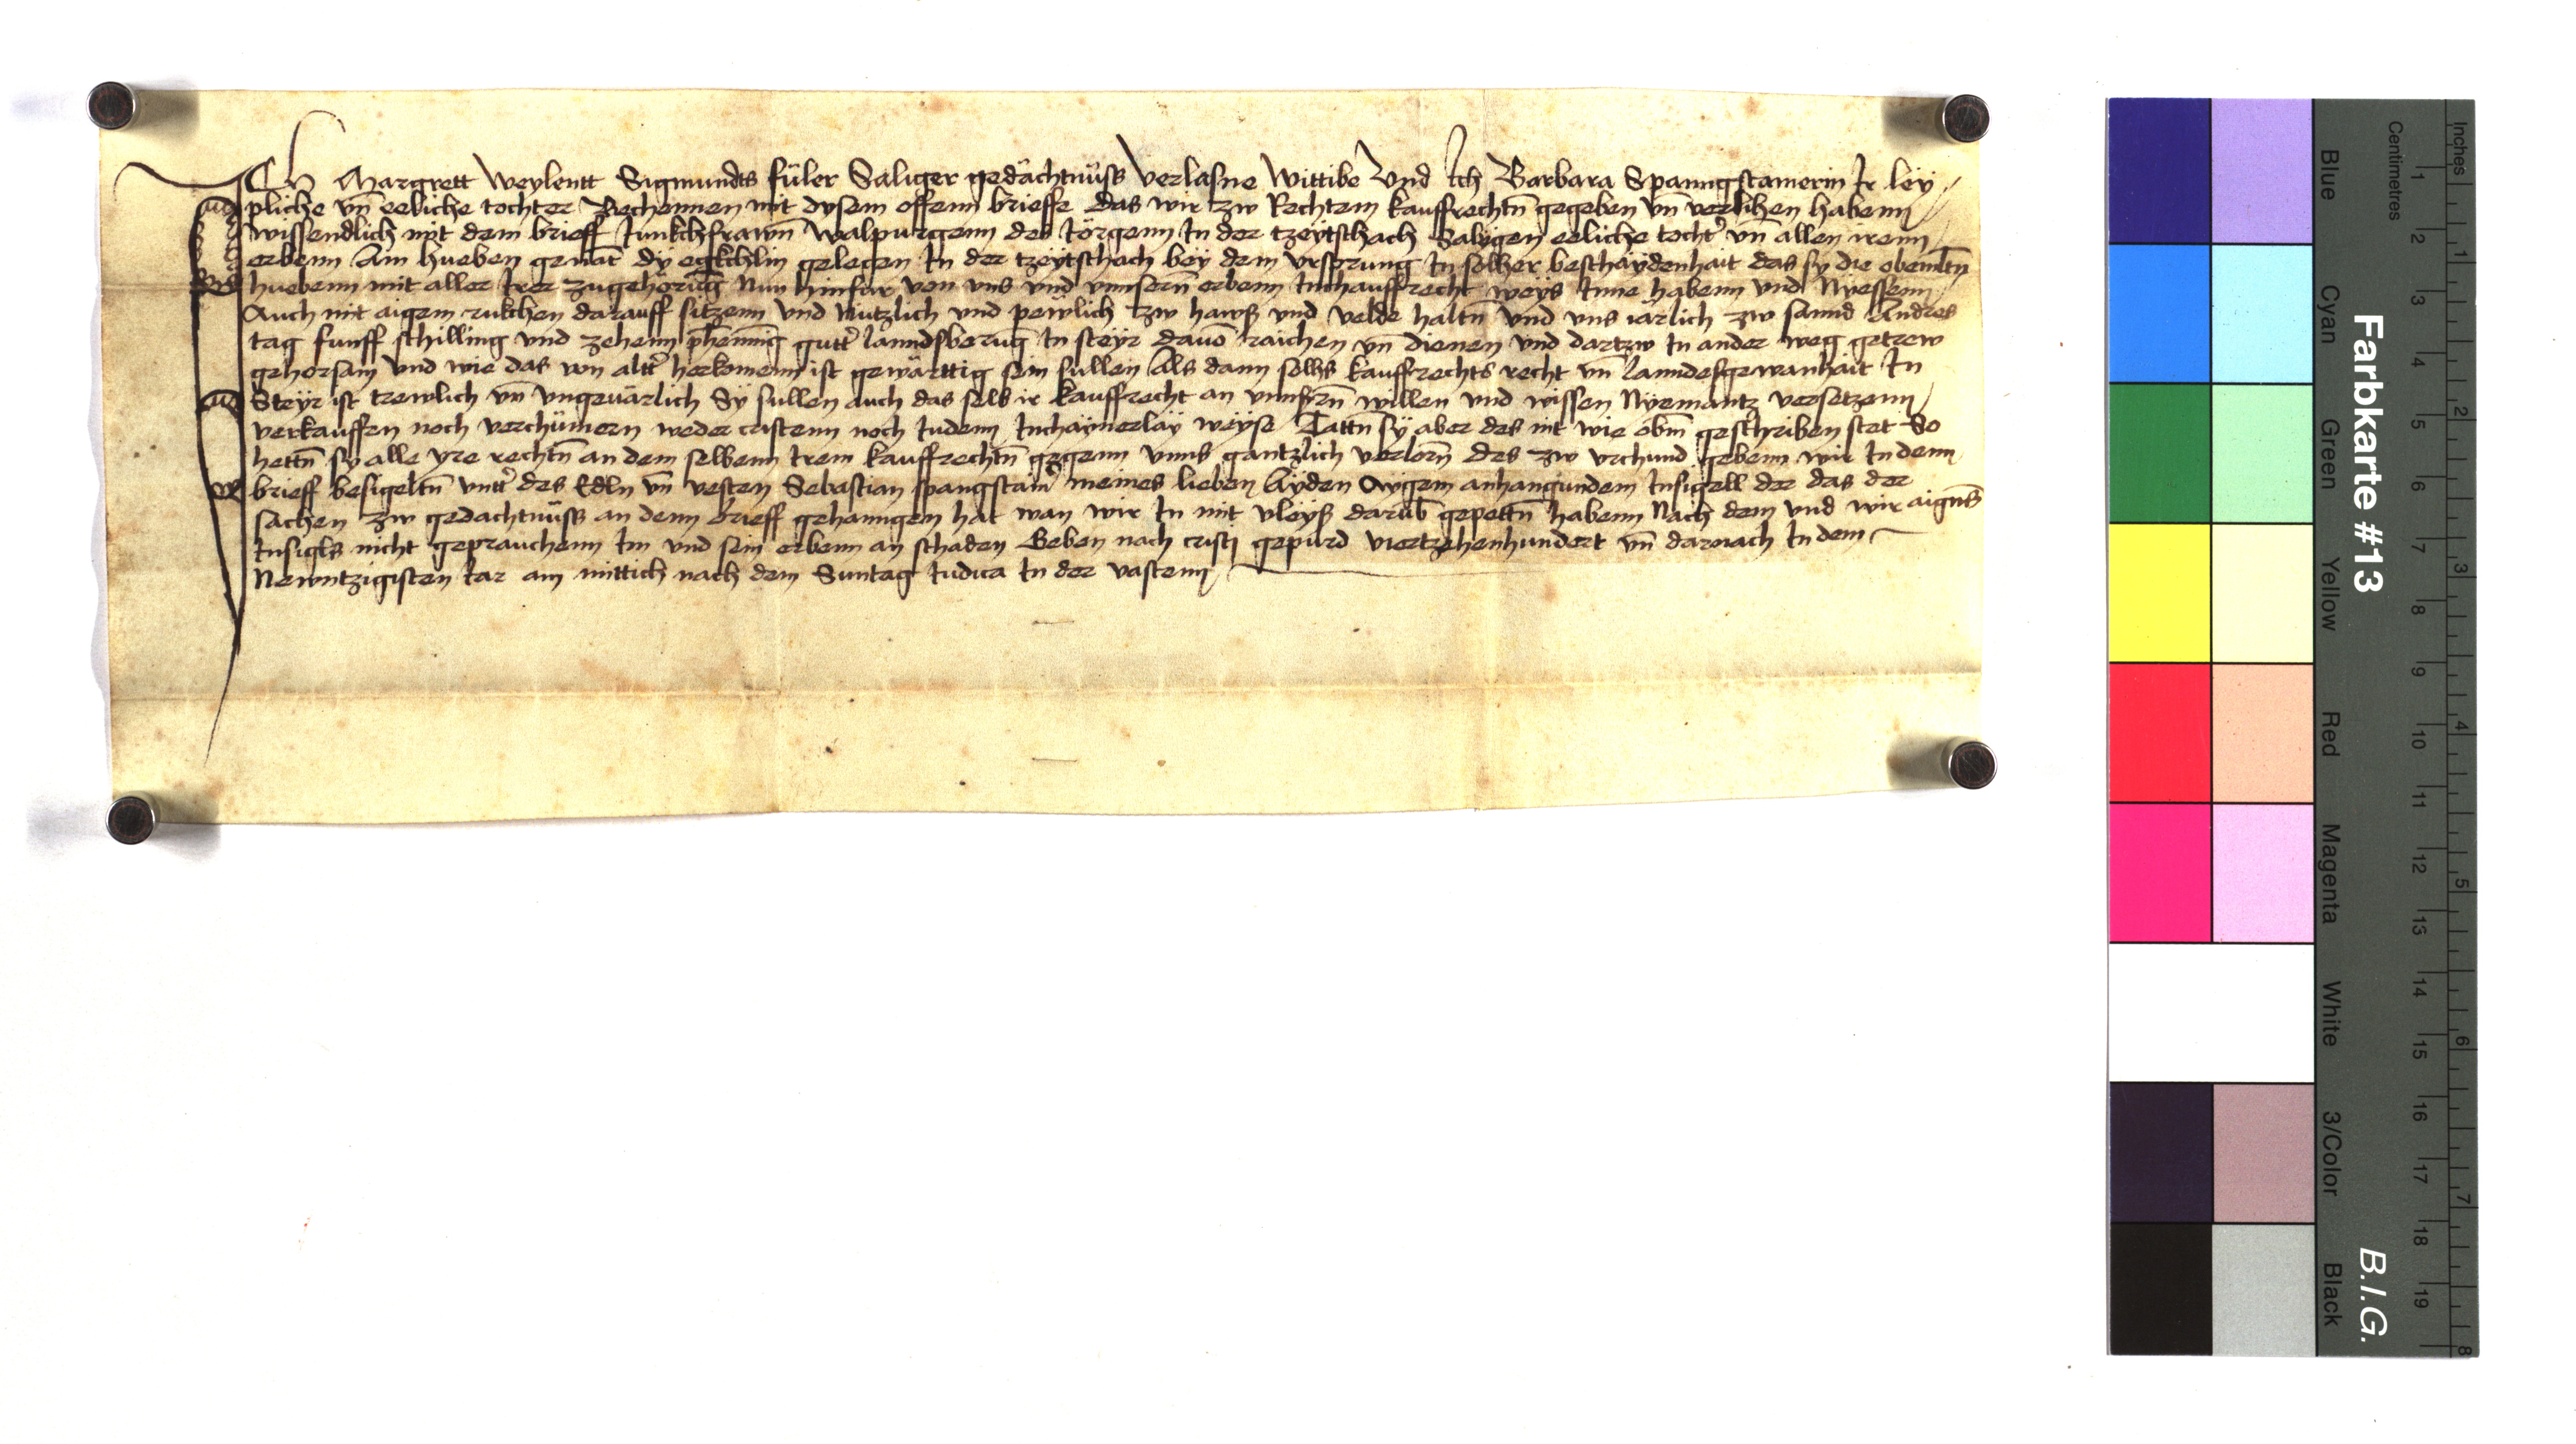 Ich Margrett Weylentt Sigmundts füler Säliger gedächtnüss Verlasne Wittibe Vnd Ich Barbara Spanngstamerin Ir ley
pliche vn̄ eeliche tochter Bechennen mit dysem offenn brieffe das wir zw Rechtem kauffrechtn̄ gegeben vn̄ verlihen habenn
wissendlich mit dem brieff Junkchfrawn̄ Walpurgenn des Jörgenn In der tzeytschach Säligen eeliche tocht͛ vn̄ allen irenn
erbenn Ain hueben genāt dy egkchlin gelegen In der tzeytschach bey dem vrsprung In solher beschaydenhait das sy die obemltn̄
huebenn mit aller Irer zugehörūg Nun hinfür von vns vnd vnnsern̄ erbenn Inchauffrecht weys Inne habenn vnd Nyessenn
Auch mit aigem rukchen darauff sitzenn vnd Nutzlich vnd pewlich zw hawß vnd velde haltn̄ vnd vns iärlich zw sannd Andres
tag funff schilling vnd zehenn phennīg gutt͛ lanndßberūg In steyr dauō raichen vn̄ dienen vnd dartzw In ander weg getrew
gehorsam vnd wie das von altt͛ herkomenn ist gewärttig sein sullen Als dann solhs kauffrechts recht vn̄ lanndesgewanhait In
Steyr ist trewlich vn̄ vngeuärlich Sy sullen auch das selb ir kauffrecht an vnnsern̄ willen vnd wissen Nyemantz versetzenn
verkauffen noch verchümern weder cristenn noch Judenn Inchaynerlay weyse Tättn̄ sy aber des nit wie obn̄ geschriben stet So
hettn̄ sy alle yre rechtn̄ an dem selbenn Irem kauffrechtn̄ gegenn vnns gantzlich verlorn̄ des zw vrchund gebenn wir In denn
brieff besigeltn̄ vntt͛ des Edln vn̄ vesten Sebastian spangstain͛ meines lieben Ayden Aygem anhangundem Insigell der das der
sachen zw gedachtnüss an denn brieff gehanngen hat wan wir In mit vleyß darūb gepettn̄ habenn Nach dem vnd wir aigns̄
Insigls nicht geprauchenn Im vnd sein erbenn an schaden Geben nach cristi gepurd viertzehenhundert vn̄ darnach In dem
Newntzigisten Iar am mittich nach dem Suntag Iudica In der vastenn
Farbkarte #13
B.I.G.
Centimetres
Inches
Blue
Cyan
Green
Yellow
Red
Magenta
White
3/Color
Black
1 2 3 4 5 6 7 8 9 10 11 12 13 14 15 16 17 18 19
1 2 3 4 5 6 7 8